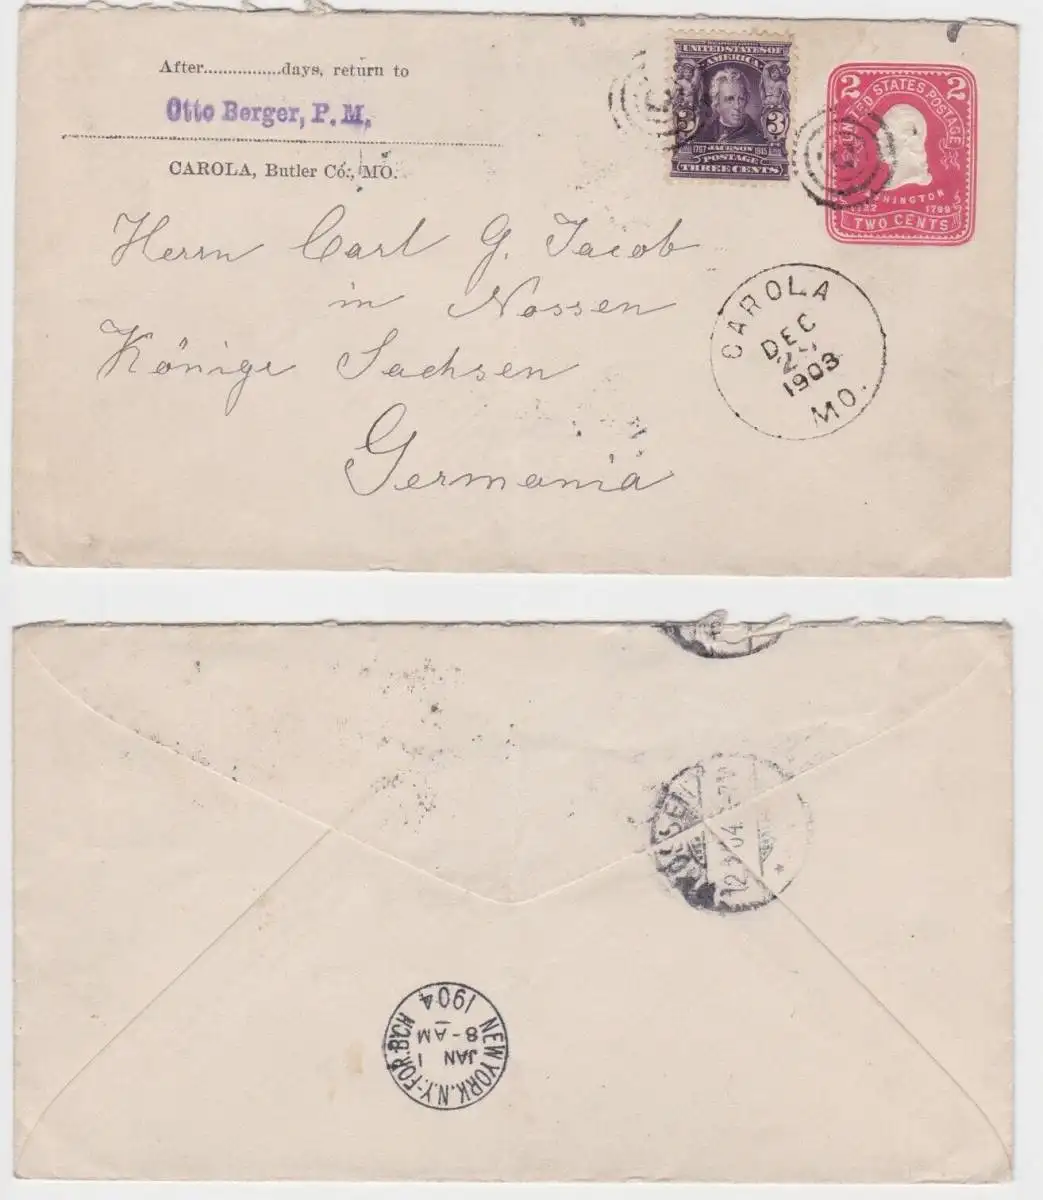 After................days, return to
Otto Berger, P. M.
CAROLA, Butler Co., MO.
UNITED STATES OF
AMERICA
3 3
1767 JACKSON 1845
POSTAGE
THREE CENTS
2 2
UNITED STATES POSTAGE
1799
TWO CENTS
Herrn Carl G. Jacob
in Nossen
Königr Sachsen
Germania
CAROLA
DEC
1903
MO.
12 04
NEW YORK, N.Y.-FOR. BCH
JAN 1
8-AM
1904